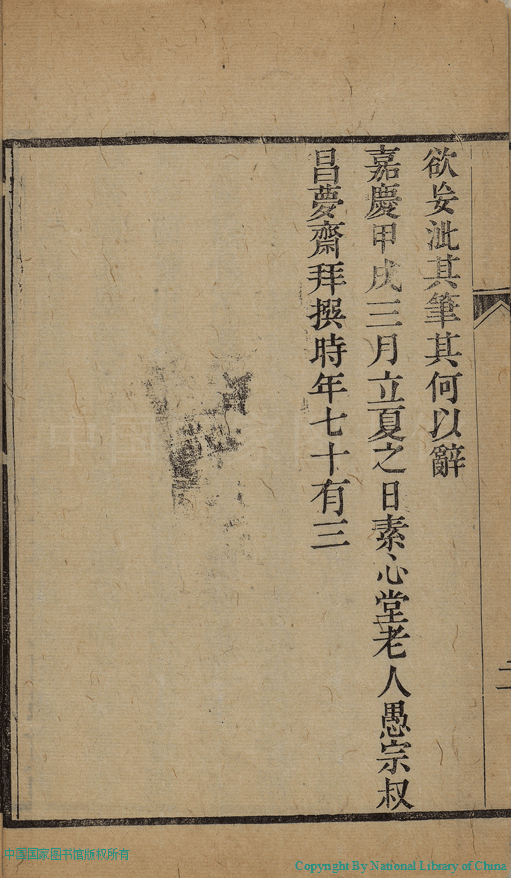 欲妄泚其筆其何以辭
嘉慶甲戌三月立夏之日素心堂老人愚宗叔
昌夢齋拜撰時年七十有三
二
中国国家图书馆版权所有
Copyright By National Library of China